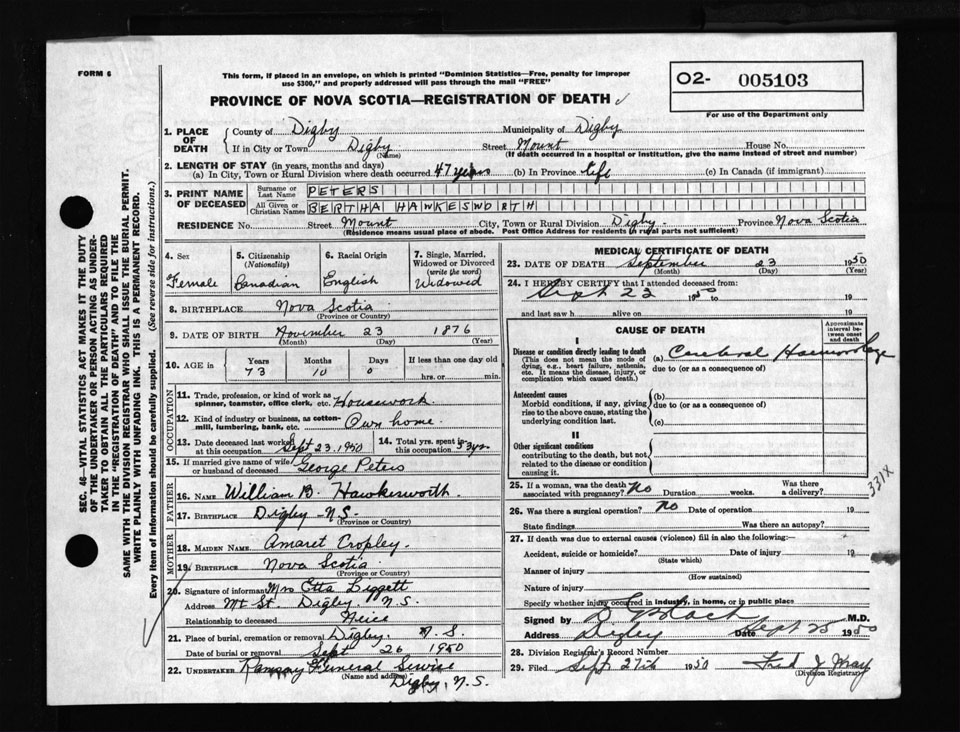 FORM 6
This form, if placed in an envelope, on which is printed "Dominion Statistics—Free, penalty for improper
use $300," and properly addressed will pass through the mail "FREE"
O2- 005103
For use of the Department only
PROVINCE OF NOVA SCOTIA—REGISTRATION OF DEATH
1. PLACE OF DEATH
County of Digby Municipality of Digby
If in City or Town Digby Street Mount House No.
(Name) (If death occurred in a hospital or institution, give the name instead of street and number)
2. LENGTH OF STAY (in years, months and days)
(a) In City, Town or Rural Division where death occurred 47 years (b) In Province Life (c) In Canada (if immigrant)
3. PRINT NAME OF DECEASED
Surname or Last Name PETERS
All Given or Christian Names BERTHA HAWKESWORTH
RESIDENCE No. Street Mount City, Town or Rural Division Digby Province Nova Scotia
(Residence means usual place of abode. Post Office Address for residents in rural parts not sufficient)
4. Sex Female
5. Citizenship (Nationality) Canadian
6. Racial Origin English
7. Single, Married, Widowed or Divorced (write the word) Widowed
8. BIRTHPLACE Nova Scotia
(Province or Country)
9. DATE OF BIRTH November 23 1876
(Month) (Day) (Year)
10. AGE in Years 73 Months 10 Days 0 If less than one day old hrs. or min.
OCCUPATION
11. Trade, profession, or kind of work as spinner, teamster, office clerk, etc. Housework
12. Kind of industry or business, as cotton-mill, lumbering, bank, etc. Own home
13. Date deceased last worked at this occupation Sept 23, 1950
14. Total yrs. spent in this occupation 53 yrs
15. If married give name of wife or husband of deceased George Peters
FATHER
16. NAME William B. Hawkesworth
17. BIRTHPLACE Digby N.S.
(Province or Country)
MOTHER
18. MAIDEN NAME Amaret Cropley
19. BIRTHPLACE Nova Scotia
(Province or Country)
20. Signature of informant Mrs Etta Liggett
Address Mt St. Digby, N.S.
Relationship to deceased Neice
21. Place of burial, cremation or removal Digby. N.S.
Date of burial or removal Sept 26 1950
22. UNDERTAKER Ramsay Funeral Service
(Name and address)
Digby, N.S.
MEDICAL CERTIFICATE OF DEATH
23. DATE OF DEATH September 23 1950
(Month) (Day) (Year)
24. I HEREBY CERTIFY that I attended deceased from:
Sept 22 1950 to 19
and last saw h alive on 19
CAUSE OF DEATH
Approximate interval between onset and death
I
Disease or condition directly leading to death
(This does not mean the mode of dying, e.g., heart failure, asthenia, etc. It means the disease, injury, or complication which caused death.)
(a) Cerebral Haemorrhage
due to (or as a consequence of)
Antecedent causes
Morbid conditions, if any, giving rise to the above cause, stating the underlying condition last.
(b)
due to (or as a consequence of)
(c)
II
Other significant conditions
contributing to the death, but not related to the disease or condition causing it.
331X
25. If a woman, was the death associated with pregnancy? No Duration weeks. Was there a delivery?
26. Was there a surgical operation? No Date of operation 19
State findings Was there an autopsy?
27. If death was due to external causes (violence) fill in also the following:—
Accident, suicide or homicide? Date of injury 19
(State which)
Manner of injury
(How sustained)
Nature of injury
Specify whether injury occurred in industry, in home, or in public place
Signed by M.D.
Address Digby Date Sept 25 1950
28. Division Registrar's Record Number
29. Filed Sept 27th 1950 Fred J Wray
(Division Registrar)
SEC. 46—VITAL STATISTICS ACT MAKES IT THE DUTY
OF THE UNDERTAKER OR PERSON ACTING AS UNDER-
TAKER TO OBTAIN ALL THE PARTICULARS REQUIRED
IN THE "REGISTRATION OF DEATH" AND TO FILE THE
SAME WITH THE DIVISION REGISTRAR WHO SHALL ISSUE THE BURIAL PERMIT.
WRITE PLAINLY WITH UNFADING INK. THIS IS A PERMANENT RECORD.
Every item of information should be carefully supplied. (See reverse side for instructions.)